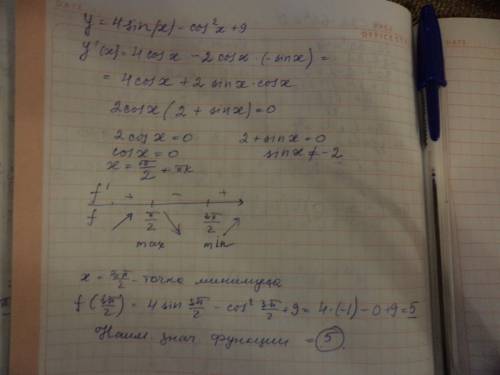 y = 4sin(x) - cos²x + 9
y'(x) = 4cosx - 2cosx · (-sinx) =
= 4cosx + 2sinx · cosx
2cosx (2 + sinx) = 0
2cosx = 0 2 + sinx = 0
cosx = 0 sinx ≠ -2
x = π/2 + πk
f' + - +
f π/2 3π/2
max min
x = 3π/2 - точка минимума
f(3π/2) = 4 sin 3π/2 - cos² 3π/2 + 9 = 4 · (-1) - 0 + 9 = 5
Наим знач функции = 5